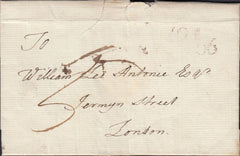 To
William Lee Antonie Esqr
Jermyn Street
London.